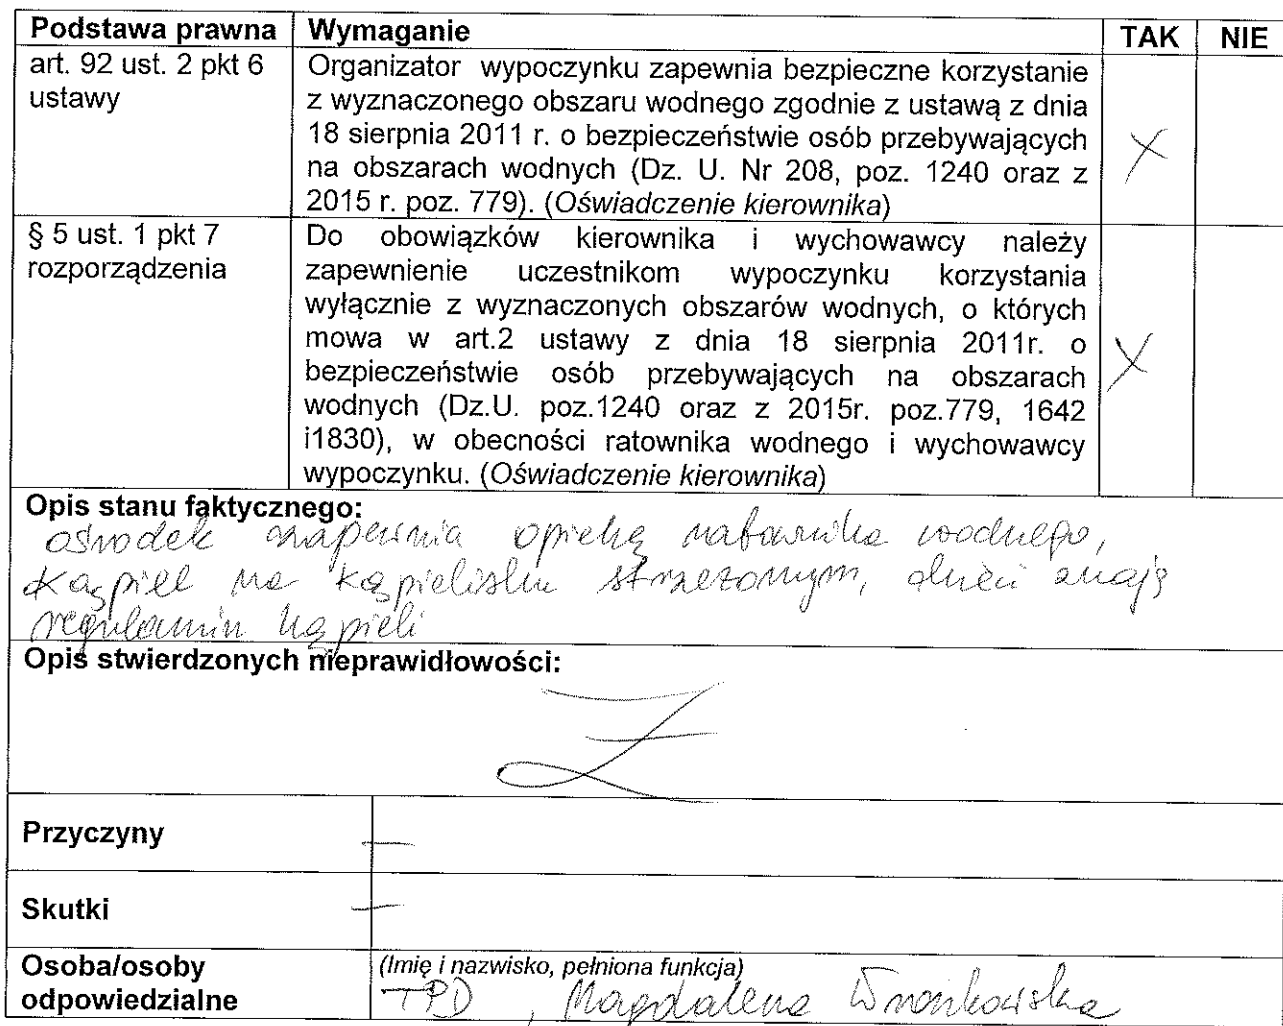 Podstawa prawna Wymaganie TAK NIE
art. 92 ust. 2 pkt 6
ustawy
Organizator wypoczynku zapewnia bezpieczne korzystanie
z wyznaczonego obszaru wodnego zgodnie z ustawą z dnia
18 sierpnia 2011 r. o bezpieczeństwie osób przebywających
na obszarach wodnych (Dz. U. Nr 208, poz. 1240 oraz z
2015 r. poz. 779). (Oświadczenie kierownika)
X
§ 5 ust. 1 pkt 7
rozporządzenia
Do obowiązków kierownika i wychowawcy należy
zapewnienie uczestnikom wypoczynku korzystania
wyłącznie z wyznaczonych obszarów wodnych, o których
mowa w art.2 ustawy z dnia 18 sierpnia 2011r. o
bezpieczeństwie osób przebywających na obszarach
wodnych (Dz.U. poz.1240 oraz z 2015r. poz.779, 1642
i1830), w obecności ratownika wodnego i wychowawcy
wypoczynku. (Oświadczenie kierownika)
X
Opis stanu faktycznego:
ośrodek zapewnia opiekę ratownika wodnego,
kąpiel na kąpielisku strzeżonym, dzieci znają
regulamin kąpieli
Opis stwierdzonych nieprawidłowości:
Przyczyny –
Skutki –
Osoba/osoby
odpowiedzialne
(Imię i nazwisko, pełniona funkcja)
TPD, Magdalena Wronkowska